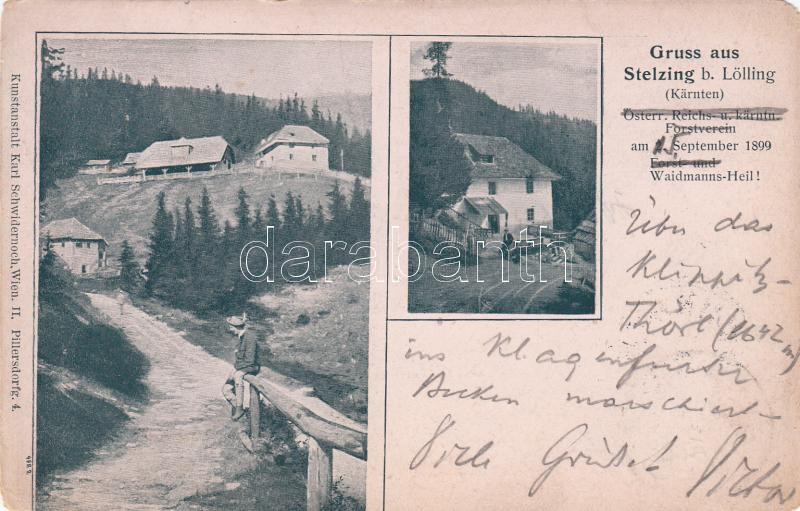 Gruss aus
Stelzing b. Lölling
(Kärnten)
Österr. Reichs- u. kärntn.
Forstverein
am 15. September 1899
Forst- und
Waidmanns-Heil!
Über das
Klippitz-
Thörl (1642 m)
ins Klagenfurter
Becken marschiert
Viele Grüsse Victor
Kunstanstalt Karl Schwidernoch, Wien. II, Pillersdorfg. 4.
darabanth